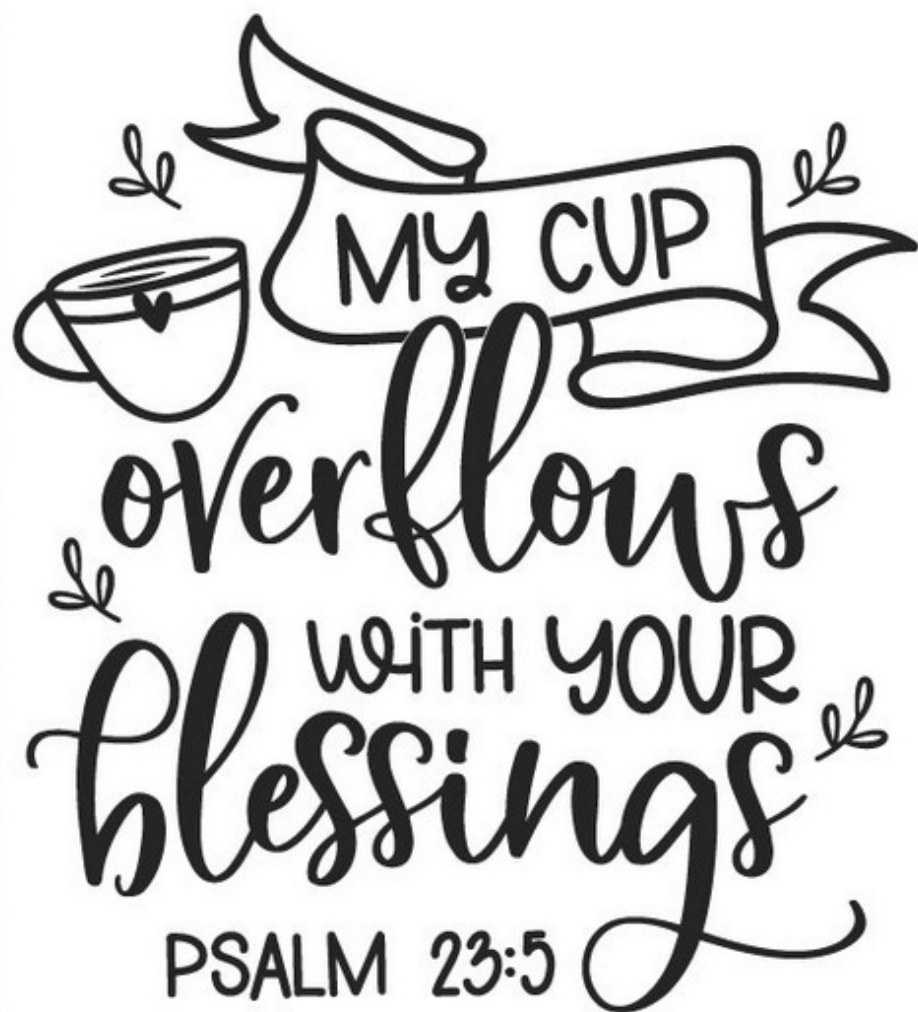 MY CUP
overflows
WiTH YOUR
blessings
PSALM 23:5